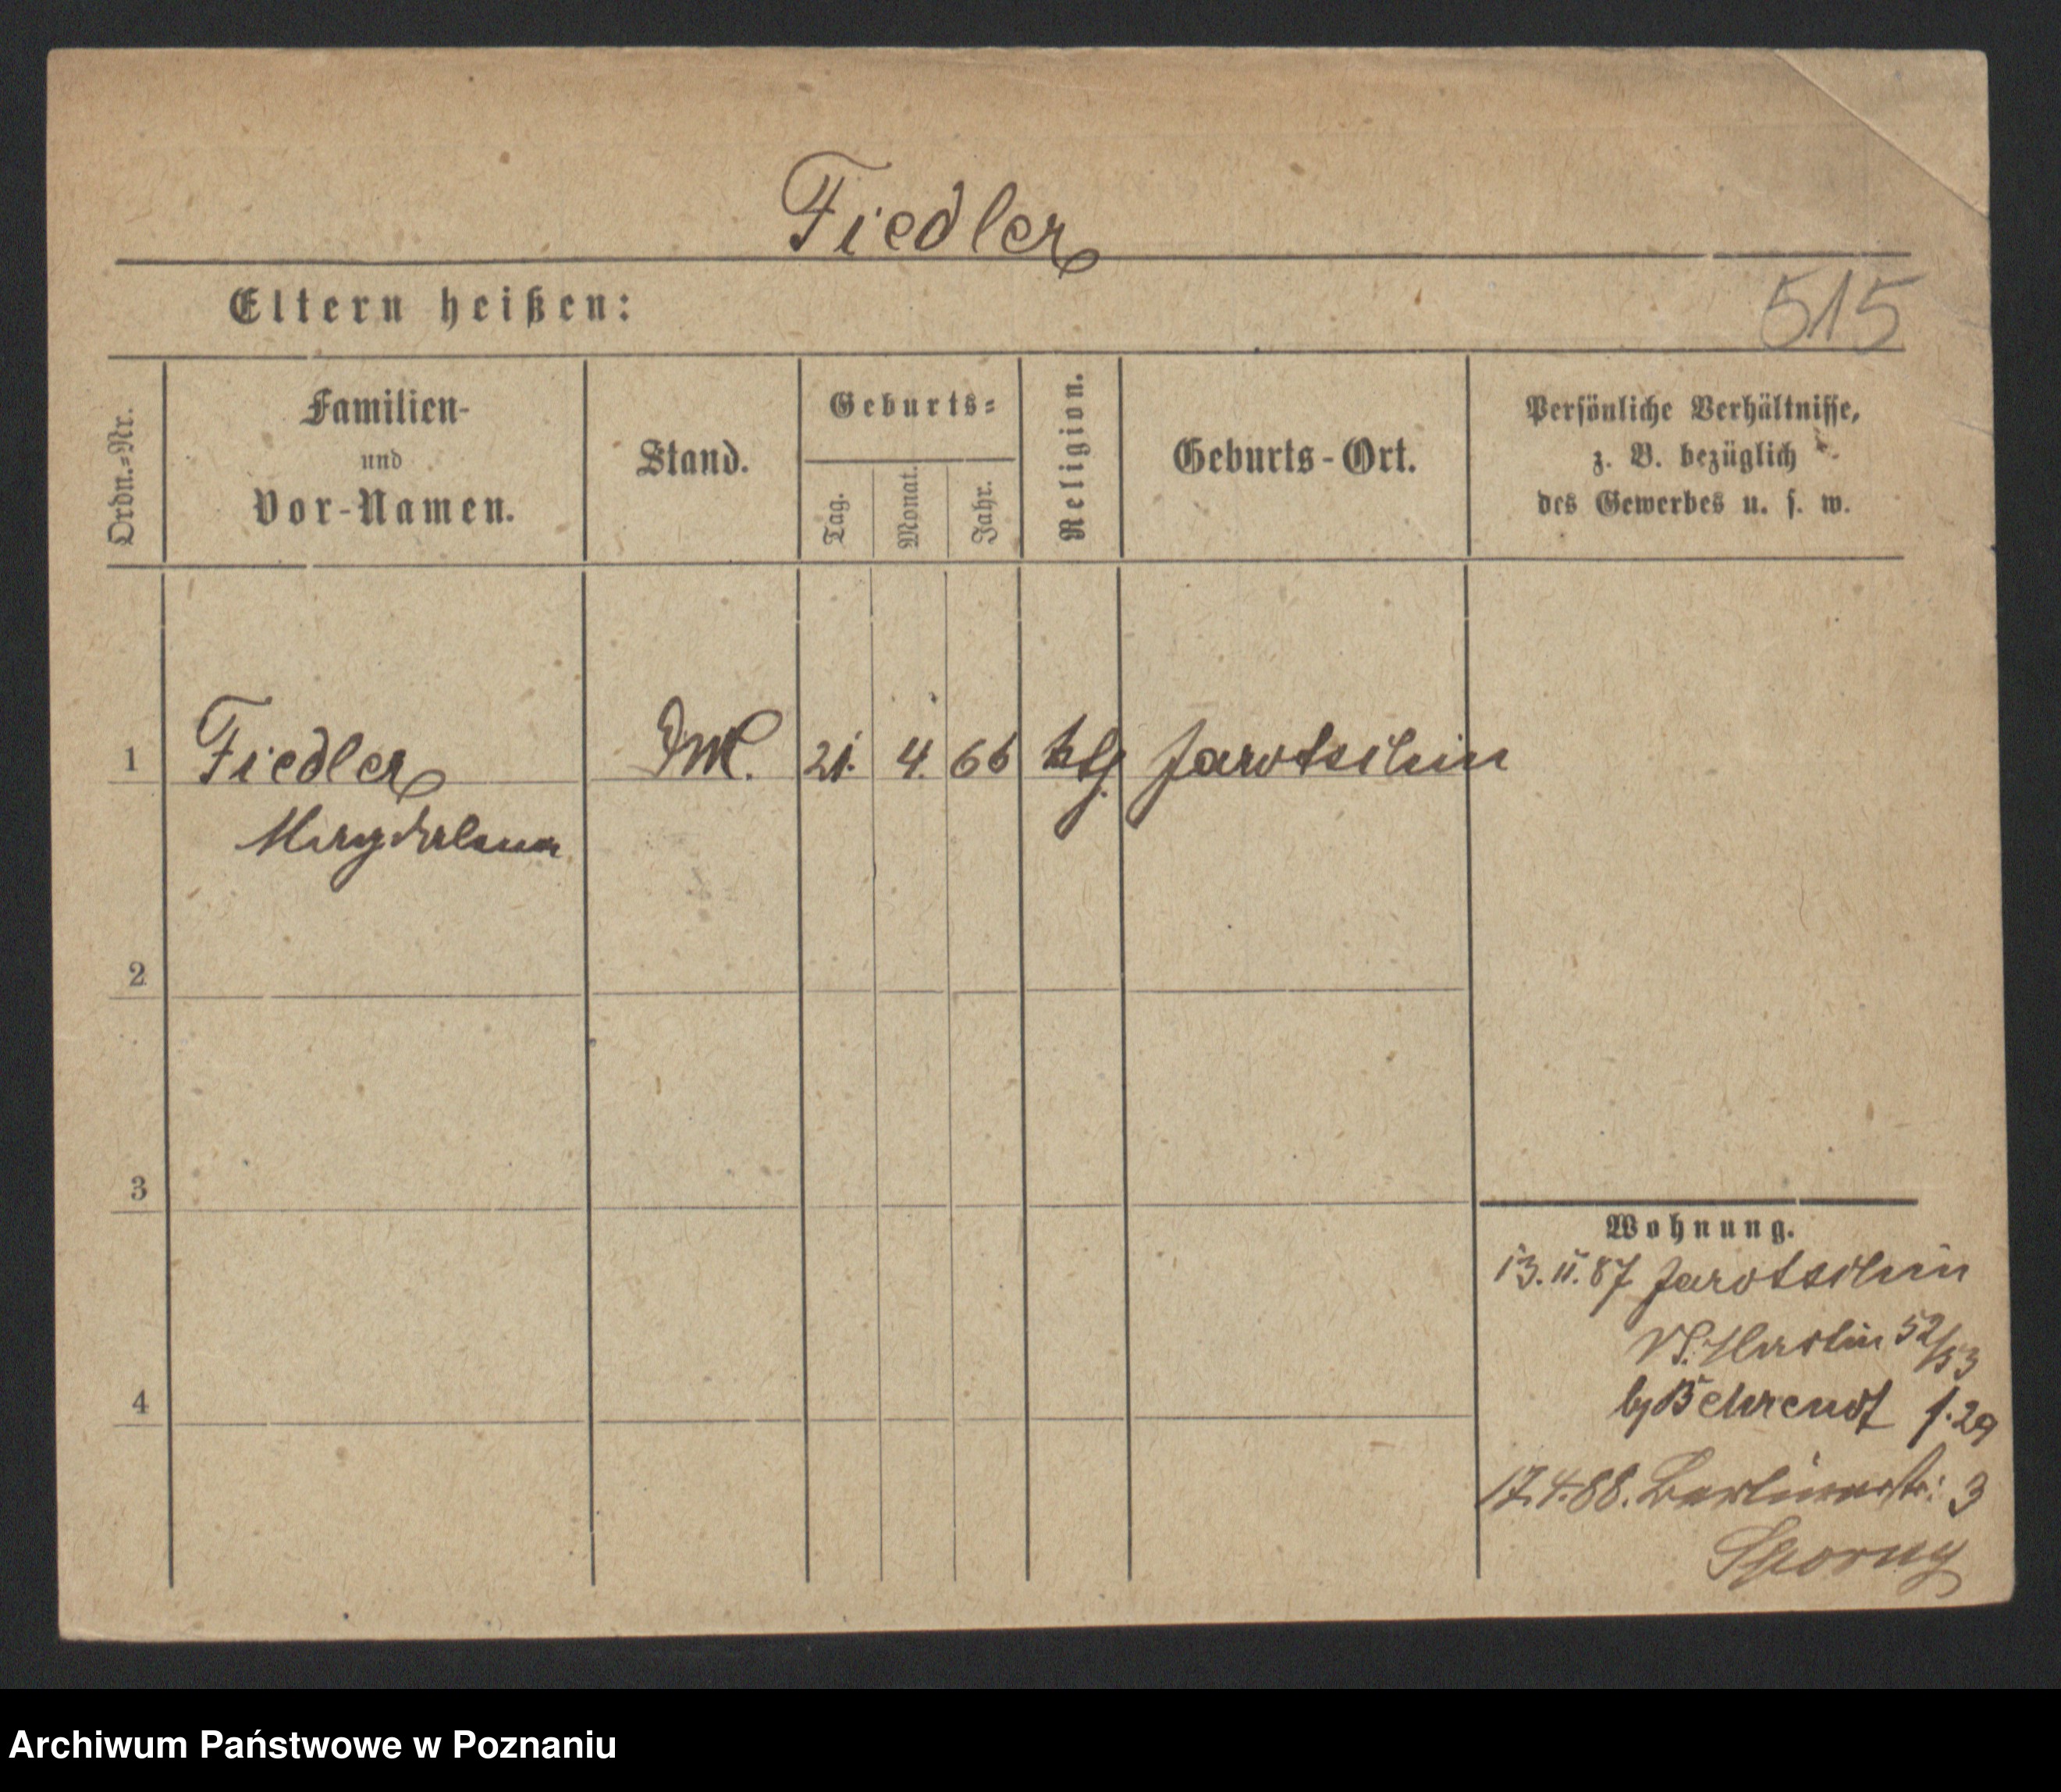 Fiedler
Eltern heißen:
515
Ordn.=Nr.
Familien-
und
Vor-Namen.
Stand.
Geburts=
Tag.
Monat.
Jahr.
Religion.
Geburts-Ort.
Persönliche Verhältnisse,
z. B. bezüglich
des Gewerbes u. s. w.
1 Fiedler DM. 21. 4. 66 kth. Jarotschin
Magdalena
2
3
4
Wohnung.
13.11.87 Jarotschin
St. Martin 52/53
by Behrendt f. 29
17.4.88. Berlinerstr: 3
Sporny
Archiwum Państwowe w Poznaniu